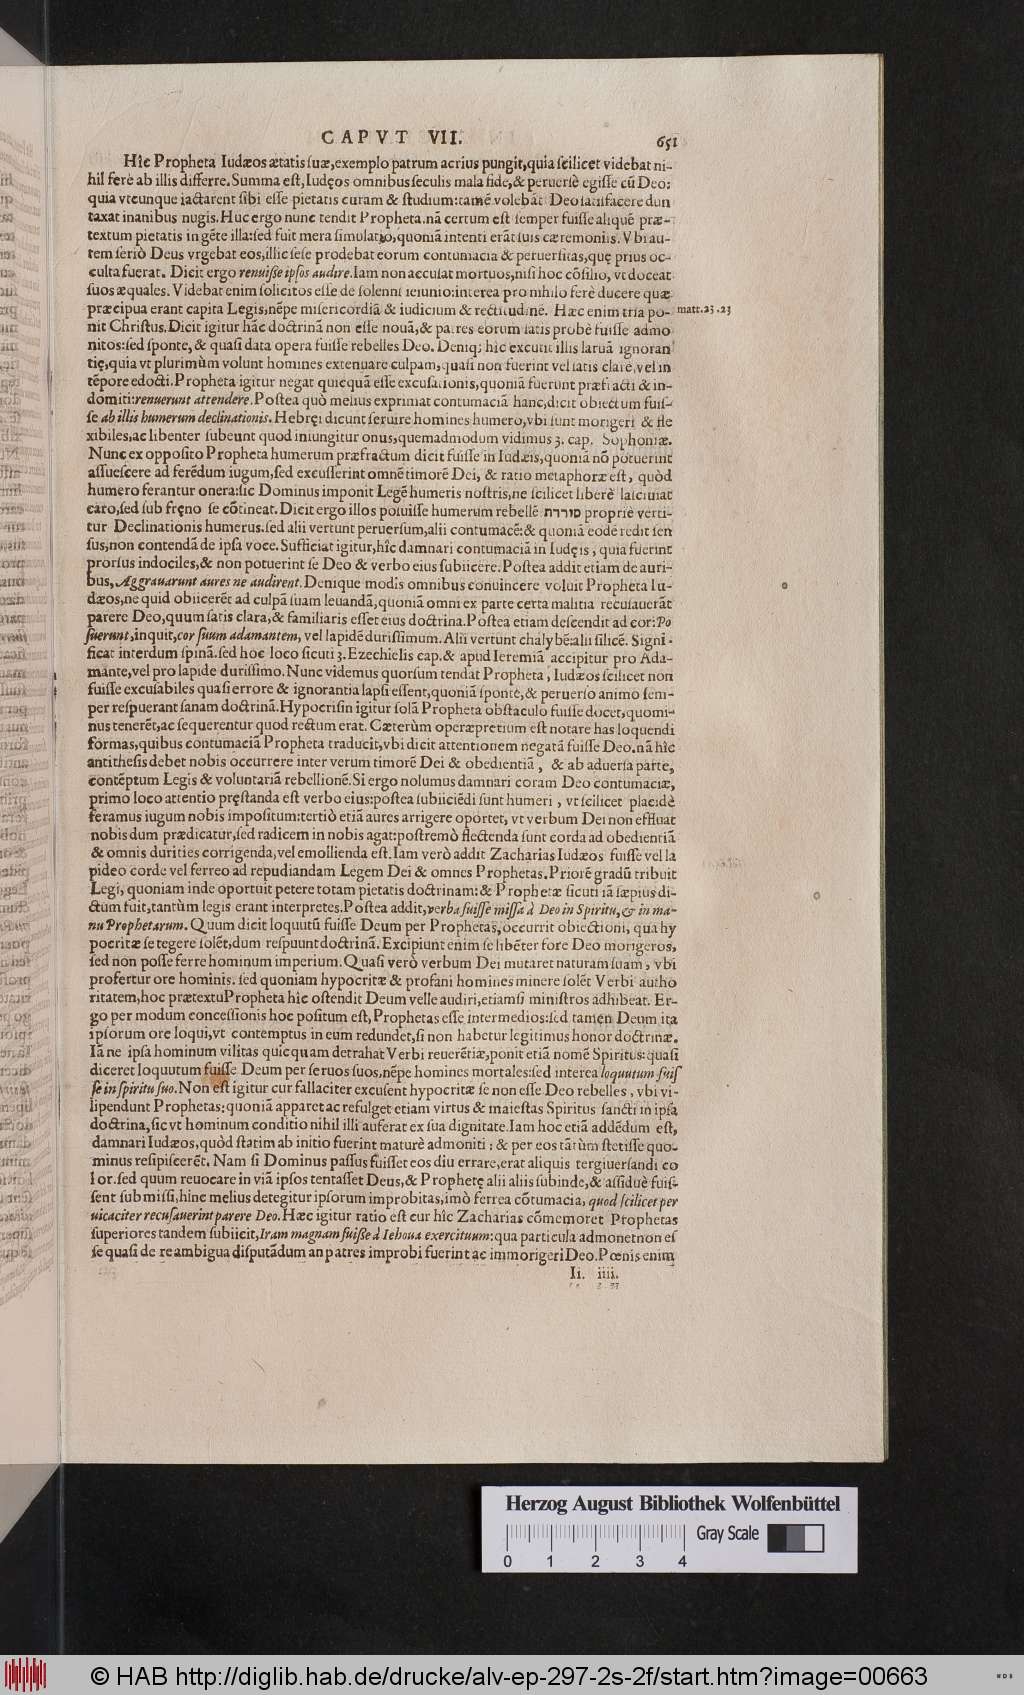 CAPVT VII. 651
Hîc Propheta Iudæos ætatis ſuæ, exemplo patrum acrius pungit, quia ſcilicet videbat ni-
hil ferè ab illis differre. Summa eſt, Iudęos omnibus ſeculis mala fide, & peruerſè egiſſe cũ Deo:
quia vtcunque iactarent ſibi eſſe pietatis curam & ſtudium: tamẽ volebãt Deo ſatisfacere dun
taxat inanibus nugis. Huc ergo nunc tendit Propheta. nã certum eſt ſemper fuiſſe aliquẽ præ-
textum pietatis in gẽte illa: ſed fuit mera ſimulatio, quoniã intenti erãt ſuis cæremoniis. Vbi au-
tem ſeriò Deus vrgebat eos, illic ſeſe prodebat eorum contumacia & peruerſitas, quę prius oc-
culta fuerat. Dicit ergo renuiſſe ipſos audire. Iam non accuſat mortuos, niſi hoc cõſilio, vt doceat
ſuos æquales. Videbat enim ſolicitos eſſe de ſolenni ieiunio: interea pro nihilo ferè ducere quæ
præcipua erant capita Legis, nẽpe miſericordiã & iudicium & rectitudinẽ. Hæc enim tria po- matt. 23. 23
nit Chriſtus. Dicit igitur hãc doctrinã non eſſe nouã, & patres eorum ſatis probè fuiſſe admo
nitos: ſed ſponte, & quaſi data opera fuiſſe rebelles Deo. Deniq; hîc excutit illis laruã ignoran
tię, quia vt plurimùm volunt homines extenuare culpam, quaſi non fuerint vel ſatis clarè, vel in
tẽpore edocti. Propheta igitur negat quicquã eſſe excuſationis, quoniã fuerunt præfracti & in-
domiti: renuerunt attendere. Poſtea quò melius exprimat contumaciã hanc, dicit obiectum fuiſ-
ſe ab illis humerum declinationis. Hebręi dicunt ſeruire homines humero, vbi ſunt morigeri & fle
xibiles, ac libenter ſubeunt quod iniungitur onus, quemadmodum vidimus 3. cap. Sophoniæ.
Nunc ex oppoſito Propheta humerum præfractum dicit fuiſſe in Iudæis, quoniã nõ potuerint
aſſueſcere ad ferẽdum iugum, ſed excuſſerint omnẽ timorẽ Dei, & ratio metaphoræ eſt, quòd
humero ferantur onera: ſic Dominus imponit Legẽ humeris noſtris, ne ſcilicet liberè laſciuiat
caro, ſed ſub fręno ſe cõtineat. Dicit ergo illos poſuiſſe humerum rebellẽ סוררת propriè verti-
tur Declinationis humerus. ſed alii vertunt peruerſum, alii contumacẽ: & quoniã eodẽ redit ſen
ſus, non contendã de ipſa voce. Sufficiat igitur, hîc damnari contumaciã in Iudęis, quia fuerint
prorſus indociles, & non potuerint ſe Deo & verbo eius ſubiicere. Poſtea addit etiam de auri-
bus, Aggrauarunt aures ne audirent. Denique modis omnibus conuincere voluit Propheta Iu-
dæos, ne quid obiicerẽt ad culpã ſuam leuandã, quoniã omni ex parte certa malitia recuſauerãt
parere Deo, quum ſatis clara, & familiaris eſſet eius doctrina. Poſtea etiam deſcendit ad cor: Po
ſuerunt, inquit, cor ſuum adamantem, vel lapidẽ duriſſimum. Alii vertunt chalybẽ: alii ſilicẽ. Signi-
ficat interdum ſpinã. ſed hoc loco ſicuti 3. Ezechielis cap. & apud Ieremiã accipitur pro Ada-
mãte, vel pro lapide duriſſimo. Nunc videmus quorſum tendat Propheta, Iudæos ſcilicet non
fuiſſe excuſabiles quaſi errore & ignorantia lapſi eſſent, quoniã ſponte, & peruerſo animo ſem-
per reſpuerant ſanam doctrinã. Hypocriſin igitur ſolã Propheta obſtaculo fuiſſe docet, quomi-
nus tenerẽt, ac ſequerentur quod rectum erat. Cæterùm operæpretium eſt notare has loquendi
formas, quibus contumaciã Propheta traducit, vbi dicit attentionem negatã fuiſſe Deo. nã hîc
antitheſis debet nobis occurrere inter verum timorẽ Dei & obedientiã, & ab aduerſa parte,
contẽptum Legis & voluntariã rebellionẽ. Si ergo nolumus damnari coram Deo contumaciæ,
primo loco attentio pręſtanda eſt verbo eius: poſtea ſubiiciẽdi ſunt humeri, vt ſcilicet placidè
feramus iugum nobis impoſitum: tertiò etiã aures arrigere oportet, vt verbum Dei non effluat
nobis dum prædicatur, ſed radicem in nobis agat: poſtremò flectenda ſunt corda ad obedientiã
& omnis durities corrigenda, vel emollienda eſt. Iam verò addit Zacharias Iudæos fuiſſe vel la
pideo corde vel ferreo ad repudiandam Legem Dei & omnes Prophetas. Priorẽ gradũ tribuit
Legi, quoniam inde oportuit petere totam pietatis doctrinam: & Prophetæ ſicuti iã ſæpius di-
ctum fuit, tantùm legis erant interpretes. Poſtea addit, verba fuiſſe miſſa à Deo in Spiritu, & in ma-
nu Prophetarum. Quum dicit loquutũ fuiſſe Deum per Prophetas, occurrit obiectioni, qua hy
pocritæ ſe tegere ſolẽt, dum reſpuunt doctrinã. Excipiunt enim ſe libẽter fore Deo morigeros,
ſed non poſſe ferre hominum imperium. Quaſi verò verbum Dei mutaret naturam ſuam, vbi
profertur ore hominis. ſed quoniam hypocritæ & profani homines minere ſolẽt Verbi autho
ritatem, hoc prætextu Propheta hîc oſtendit Deum velle audiri, etiamſi miniſtros adhibeat. Er-
go per modum conceſſionis hoc poſitum eſt, Prophetas eſſe intermedios: ſed tamen Deum ita
ipſorum ore loqui, vt contemptus in eum redundet, ſi non habetur legitimus honor doctrinæ.
Iã ne ipſa hominum vilitas quicquam detrahat Verbi reuerẽtiæ, ponit etiã nomẽ Spiritus: quaſi
diceret loquutum fuiſſe Deum per ſeruos ſuos, nẽpe homines mortales: ſed interea loquutum fuiſ
ſe in ſpiritu ſuo. Non eſt igitur cur fallaciter excuſent hypocritæ ſe non eſſe Deo rebelles, vbi vi-
lipendunt Prophetas: quoniã apparet ac refulget etiam virtus & maieſtas Spiritus ſancti in ipſa
doctrina, ſic vt hominum conditio nihil illi auferat ex ſua dignitate. Iam hoc etiã addẽdum eſt,
damnari Iudæos, quòd ſtatim ab initio fuerint maturè admoniti: & per eos tãtùm ſtetiſſe quo-
minus reſipiſcerẽt. Nam ſi Dominus paſſus fuiſſet eos diu errare, erat aliquis tergiuerſandi co
lor. ſed quum reuocare in viã ipſos tentaſſet Deus, & Prophetę alii aliis ſubinde, & aſſiduè fuiſ-
ſent ſubmiſſi, hinc melius detegitur ipſorum improbitas, imò ferrea cõtumacia, quod ſcilicet per
uicaciter recuſauerint parere Deo. Hæc igitur ratio eſt cur hîc Zacharias cõmemoret Prophetas
ſuperiores tandem ſubiicit, Iram magnam fuiſſe à Iehoua exercituum: qua particula admonet non eſ
ſe quaſi de re ambigua diſputãdum an patres improbi fuerint ac immorigeri Deo. Pœnis enim
Ii. iiii.
Herzog August Bibliothek Wolfenbüttel
Gray Scale
0 1 2 3 4
© HAB http://diglib.hab.de/drucke/alv-ep-297-2s-2f/start.htm?image=00663
WDB